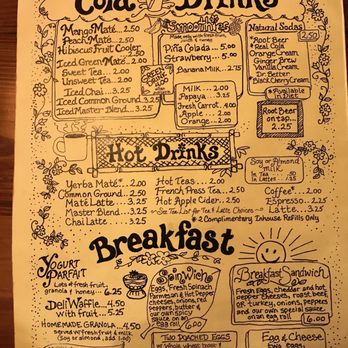 Cold Drinks
Mango Maté..2.50
Peach Maté..2.50
Hibiscus Fruit Cooler
Iced Green Maté..2.50
Sweet Tea...2.00
Unsweet Tea...2.00
Iced Chai....3.25
Iced Common Ground...3.25
Iced Master Blend...3.25
Smoothies
Piña Colada....5.00
Strawberry...5.00
Banana Milk...2.75
Milk....2.00
Papaya...3.15
Fresh Carrot..4.00
Apple...2.00
Orange...2.00
Natural Sodas
2.50
Root Beer
Real Cola
Orange Cream
Ginger Brew
Vanilla Cream
Dr. Better
Black Cherry Cream
Available in Diet
Root Beer
on tap...
2.25
Hot Drinks
Yerba Maté....2.00
Common Ground...2.50
Maté Latte....3.25
Master Blend....3.25
Chai Latte....3.25
Hot Teas...2.00
French Press Tea...2.50
Hot Apple Cider..2.50
See Tea List for Tea & Latte Choices
Soy or Almond
Milk
in Tea
in Lattes
Coffee*...2.00
Espresso...2.25
Latte...3.25
*2 Complimentary Inhouse Refills Only
Breakfast
Yogurt
Parfait
Lots of fresh fruit,
granola & honey...
6.25
Deli Waffle...4.50
with fruit...5.50
Homemade Granola..4.50
serves w/fresh fruit & milk.
(Soy or almond, add 1.00)
Spinwich
Eggs, Fresh Spinach,
Parmesan & Hot Pepper
cheeses, onions, red
peppers, butter &
our own spicy
sauce on an
egg roll 6.00
Breakfast Sandwich
Fresh eggs, cheddar and hot
pepper cheeses, roast beef,
or turkey, onions, peppers
and our own special sauce,
on an egg roll 6.00
Two Poached Eggs
on whole wheat toast
Egg & Cheese